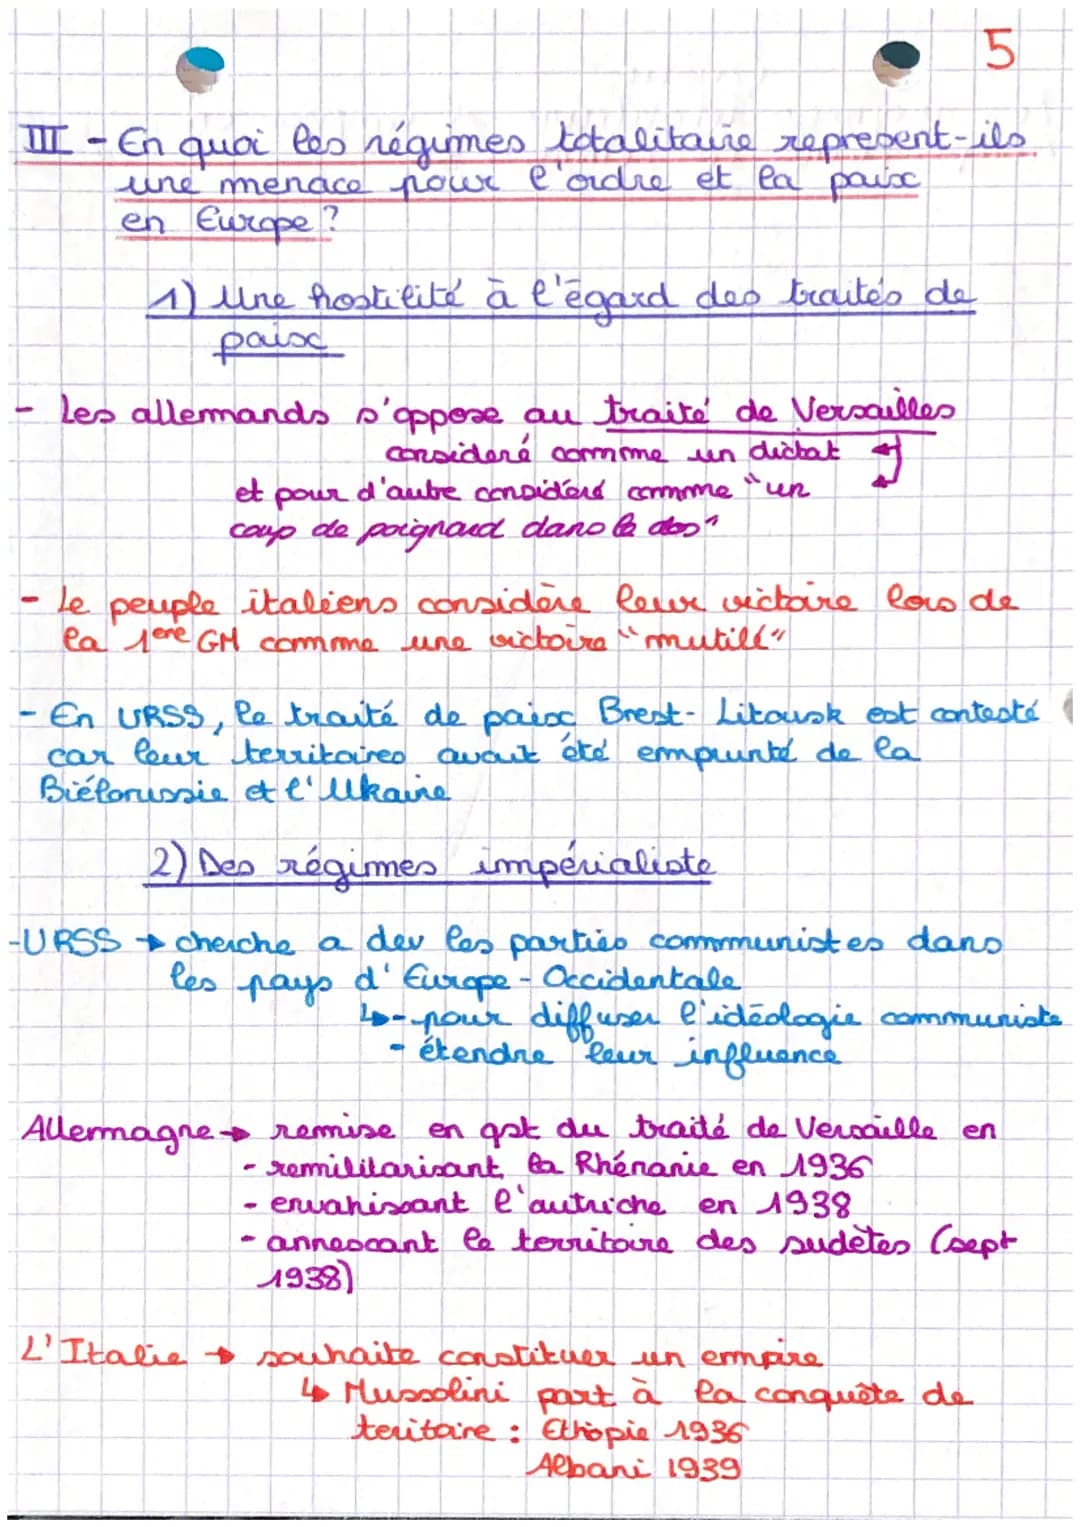 5
III - En quoi les régimes totalitaire represent-ils
une menace pour l'ordre et la paix
en Europe ?
1) Une hostilité à l'égard des traités de
paix
- Les allemands s'oppose au traité de Versailles
consideré comme un dictat
et pour d'autre considéré comme "un
coup de poignard dans le dos"
- Le peuple italiens considère leur victoire lors de
la 1ère GM comme une victoire "mutillé"
- En URSS, le traité de paix Brest-Litovsk est contesté
car leur territoires avait été emprunté de la
Biélorussie et l'Ukaine
2) Des régimes impérialiste
- URSS → cherche a dev les partiés communistes dans
les pays d'Europe-Occidentale
↳ - pour diffuser l'idéologie communiste
- étendre leur influence
Allemagne → remise en qst du traité de Versaille en
- remilitarisant la Rhénanie en 1936
- envahissant l'autriche en 1938
- annexant le territoire des sudètes (sept
1938)
L'Italie → souhaite constituer un empire
↳ Mussolini part à la conquête de
teritaire : Ethiopie 1936
Albani 1939